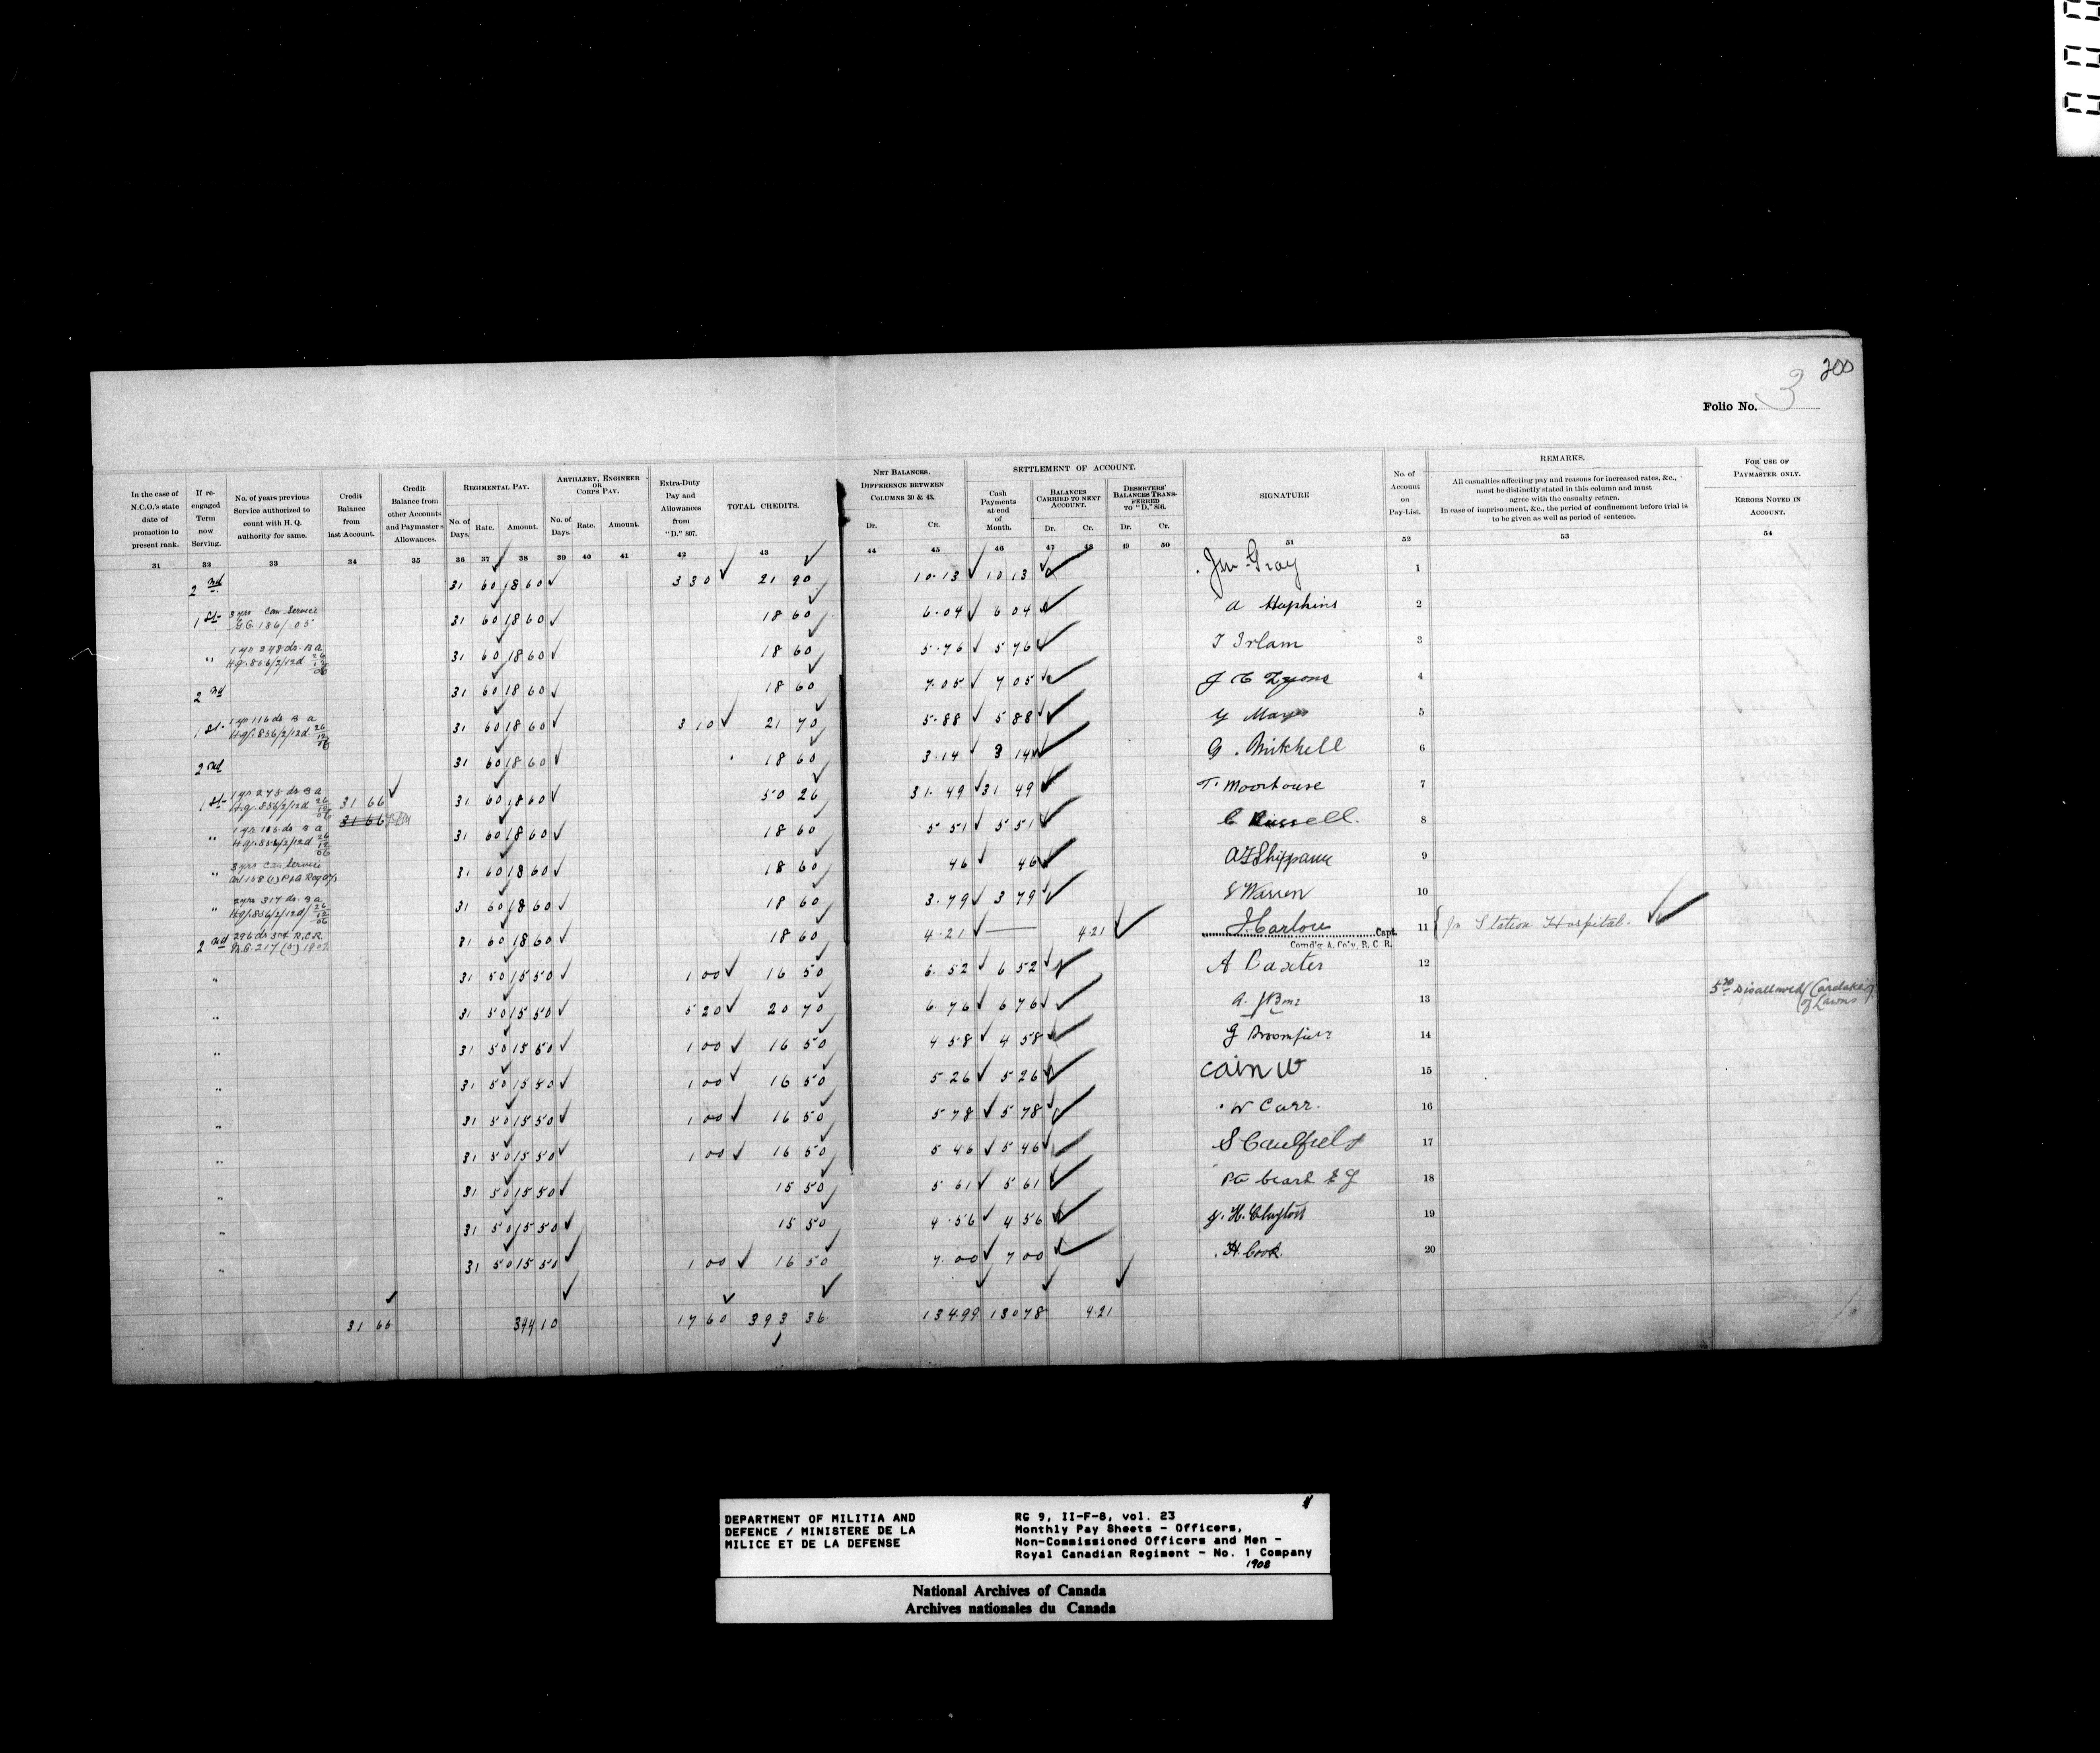 200
Folio No. 3
In the case of N.C.O.'s state date of promotion to present rank.
If re-engaged Term now Serving.
No. of years previous Service authorized to count with H. Q. authority for same.
Credit Balance from last Account.
Credit Balance from other Accounts and Paymaster's Allowances.
REGIMENTAL PAY.
No. of Days. Rate. Amount.
ARTILLERY, ENGINEER OR CORPS PAY.
No. of Days. Rate. Amount.
Extra-Duty Pay and Allowances from "D." 807.
TOTAL CREDITS.
NET BALANCES. DIFFERENCE BETWEEN COLUMNS 30 & 43.
Dr. Cr.
SETTLEMENT OF ACCOUNT.
Cash Payments at end of Month.
BALANCES CARRIED TO NEXT ACCOUNT.
Dr. Cr.
DESERTERS' BALANCES TRANSFERRED TO "D." 806.
Dr. Cr.
SIGNATURE
No. of Account on Pay-List.
REMARKS.
All casualties affecting pay and reasons for increased rates, &c., must be distinctly stated in this column and must agree with the casualty return.
In case of imprisonment, &c., the period of confinement before trial is to be given as well as period of sentence.
FOR USE OF PAYMASTER ONLY.
ERRORS NOTED IN ACCOUNT.
31 32 33 34 35 36 37 38 39 40 41 42 43 44 45 46 47 48 49 50 51 52 53 54
2nd 31 60 18 60 3 30 21 90 10.13 10 13 Jno Gray 1
1st 3 yrs Can Service G.O. 186/05 31 60 18 60 18 60 6.04 6 04 A Hopkins 2
" 1 yr 248 ds B a H.q. 856/2/12d 26/12/06 31 60 18 60 18 60 5.76 5 76 T Irlam 3
2nd 31 60 18 60 18 60 7.05 7 05 J C Lyons 4
1st 1 yr 116 ds B a H.q. 856/2/12d 26/12/06 31 60 18 60 3 10 21 70 5.88 5 88 5
2nd 31 60 18 60 18 60 3.14 3 14 G. Mitchell 6
1st 1 yr 275 ds B a H.q. 856/2/12d 26/12/06 31 66 31 60 18 60 50 26 31.49 31 49 T. Moorhouse 7
31 66
" B a H.q. 856/2/12d 26/12/06 31 60 18 60 18 60 5 51 5 51 C Russell. 8
" 3 yrs Can Service 31 60 18 60 18 60 46 46 9
" 2 yrs 317 ds B a H.q. 856/2/12d 26/12/06 31 60 18 60 18 60 3.79 3 79 S Warren 10
2nd 296 ds R.C.R. 31 60 18 60 18 60 4.21 4.21 Capt. Comd'g A. Co'y, R. C. R. 11 In Station Hospital.
" 31 50 15 50 1 00 16 50 6.52 6 52 A Baxter 12
" 31 50 15 50 5 20 20 70 6.76 6 76 13 5 20 Disallowed (Caretaker of Lawns
" 31 50 15 50 1 00 16 50 4 58 4 58 14
" 31 50 15 50 1 00 16 50 5.26 5 26 Cain W 15
" 31 50 15 50 1 00 16 50 5 78 5 78 W Carr. 16
" 31 50 15 50 1 00 16 50 5 46 5 46 S Caulfield 17
" 31 50 15 50 15 50 5 61 5 61 18
" 31 50 15 50 15 50 4.56 4 56 J. H. Clayton 19
" 31 50 15 50 1 00 16 50 7.00 7 00 H. Cook. 20
31 66 344 10 17 60 393 36 134.99 130 78 4.21
DEPARTMENT OF MILITIA AND
DEFENCE / MINISTERE DE LA
MILICE ET DE LA DEFENSE
RG 9, II-F-8, vol. 23
Monthly Pay Sheets - Officers,
Non-Commissioned Officers and Men -
Royal Canadian Regiment - No. 1 Company
1908
National Archives of Canada
Archives nationales du Canada